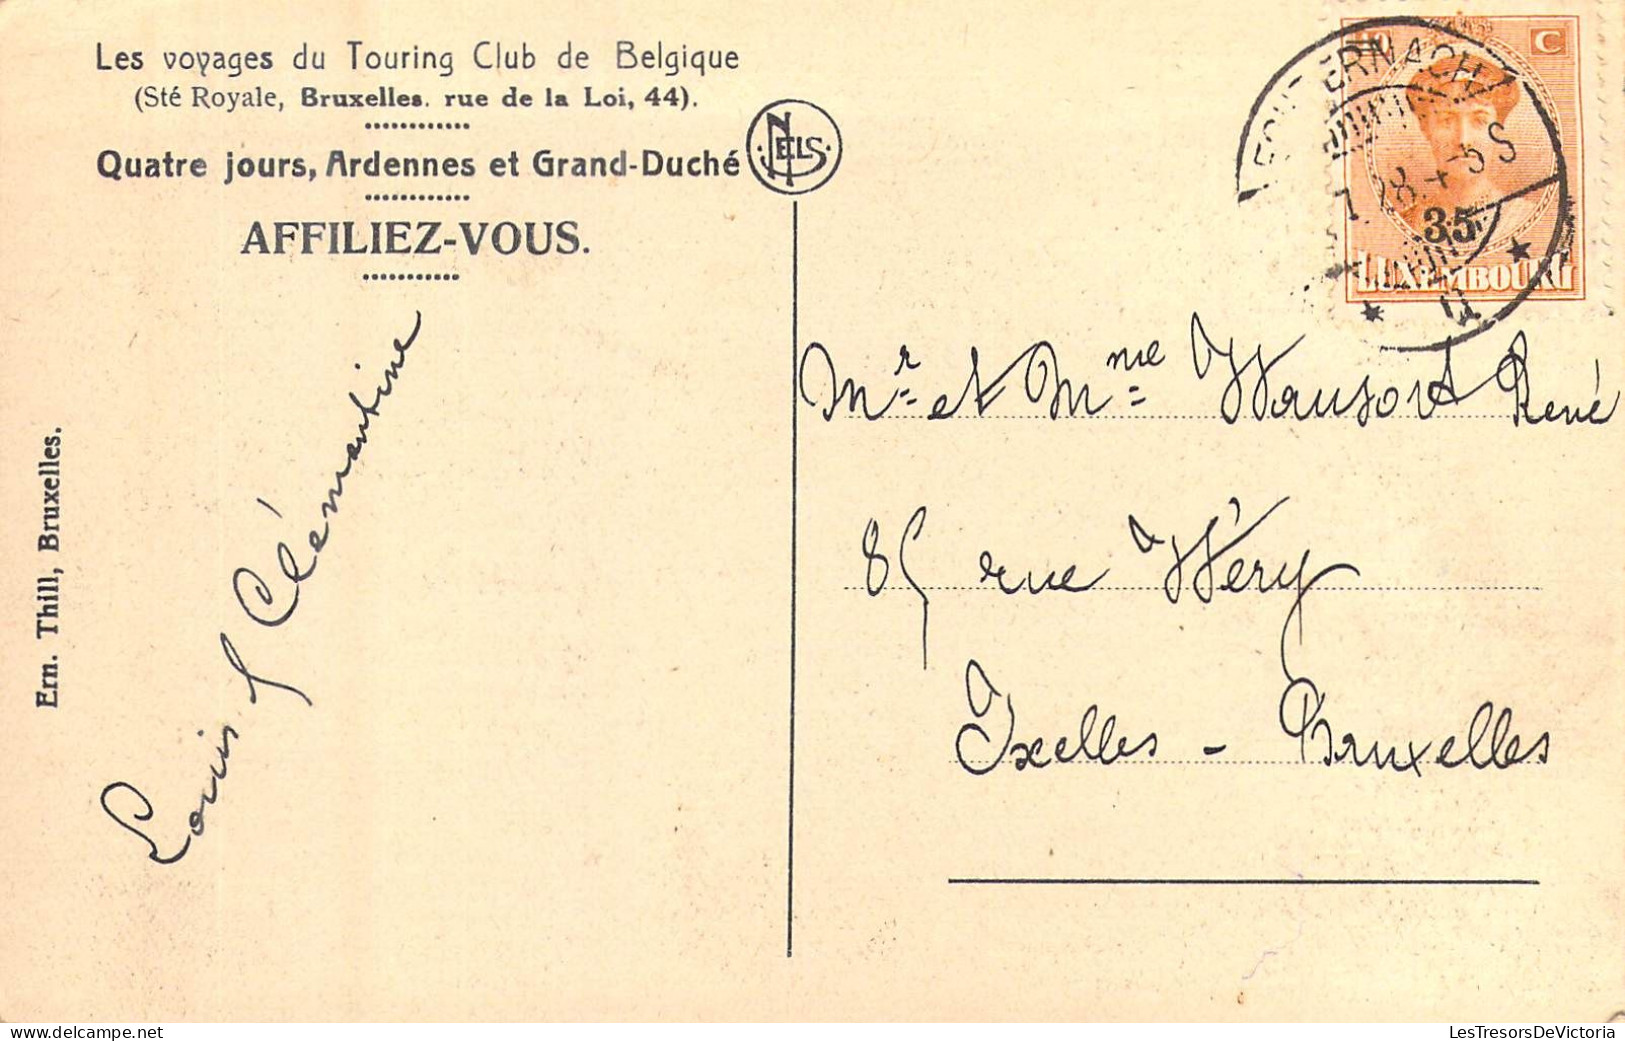 Les voyages du Touring Club de Belgique
(Sté Royale, Bruxelles. rue de la Loi, 44).
Quatre jours, Ardennes et Grand-Duché
AFFILIEZ-VOUS.
NELS
Ern. Thill, Bruxelles.
Louis & Clémantine
ECHTERNACH
7.28. 4-5 S
10 C
35
LUXEMBOURG
Mr. et Mme Wausort René
85 rue Wéry
Ixelles - Bruxelles
LesTresorsDeVictoria
delcampe.net